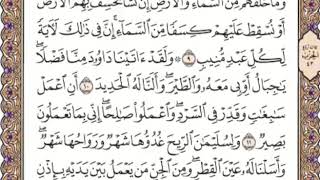 وَمَا خَلْفَهُم مِّنَ ٱلسَّمَآءِ وَٱلْأَرْضِ إِن نَّشَأْ نَخْسِفْ بِهِمُ ٱلْأَرْضَ
أَوْ نُسْقِطْ عَلَيْهِمْ كِسَفًا مِّنَ ٱلسَّمَآءِ إِنَّ فِى ذَٰلِكَ لَءَايَةً
لِّكُلِّ عَبْدٍ مُّنِيبٍ ٩ ۞ وَلَقَدْ ءَاتَيْنَا دَاوُۥدَ مِنَّا فَضْلًا
يَٰجِبَالُ أَوِّبِى مَعَهُۥ وَٱلطَّيْرَ وَأَلَنَّا لَهُ ٱلْحَدِيدَ ١٠ أَنِ ٱعْمَلْ
سَٰبِغَٰتٍ وَقَدِّرْ فِى ٱلسَّرْدِ وَٱعْمَلُوا۟ صَٰلِحًا إِنِّى بِمَا تَعْمَلُونَ
بَصِيرٌ ١١ وَلِسُلَيْمَٰنَ ٱلرِّيحَ غُدُوُّهَا شَهْرٌ وَرَوَاحُهَا شَهْرٌ
وَأَسَلْنَا لَهُۥ عَيْنَ ٱلْقِطْرِ وَمِنَ ٱلْجِنِّ مَن يَعْمَلُ بَيْنَ يَدَيْهِ بِإِذْنِ